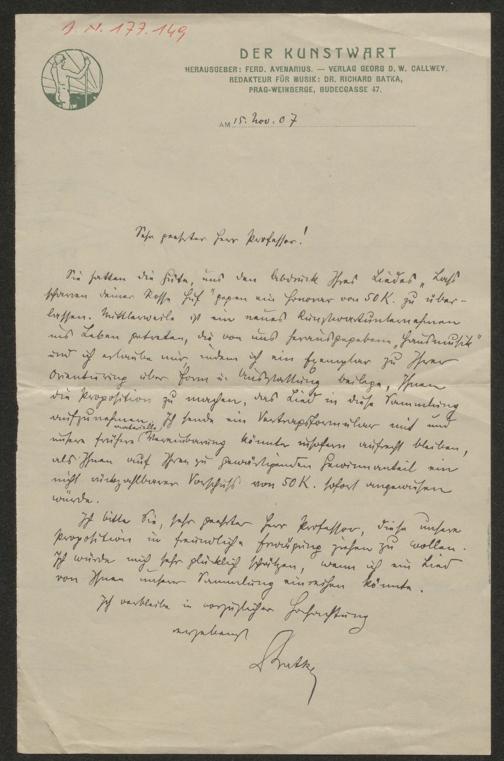 I. N. 177.149
DER KUNSTWART
HERAUSGEBER: FERD. AVENARIUS. — VERLAG GEORG D. W. CALLWEY.
REDAKTEUR FÜR MUSIK: DR. RICHARD BATKA,
PRAG-WEINBERGE, BUDECGASSE 47.
AM 15. Nov. 07
Sehr geehrter Herr Professor!
Sie hatten die Güte, uns den Abdruck Ihres Liedes „Lass
scharren deiner Rosse Huf" gegen ein Honorar von 50 K. zu über-
lassen. Mittlerweile ist ein neues Kunstwartunternehmen
ins Leben getreten, die von uns herausgegebene „Hausmusik"
und ich erlaube mir, indem ich ein Exemplar zu Ihrer
Orientirung über Form u. Ausstattung beilege, Ihnen
die Proposition zu machen, das Lied in diese Sammlung
aufzunehmen. Ich sende ein Vertragsformular mit und
unsere frühere materielle Vereinbarung könnte insofern aufrecht bleiben,
als Ihnen auf Ihren zu gewärtigenden Gewinnanteil ein
nicht rückzahlbarer Vorschuss von 50 K. sofort angewiesen
würde.
Ich bitte Sie, sehr geehrter Herr Professor, diese unsere
Proposition in freundliche Erwägung ziehen zu wollen.
Ich würde mich sehr glücklich schätzen, wenn ich ein Lied
von Ihnen unserer Sammlung einreihen könnte.
Ich verbleibe in vorzüglicher Hochachtung
ergebenst
RBatka